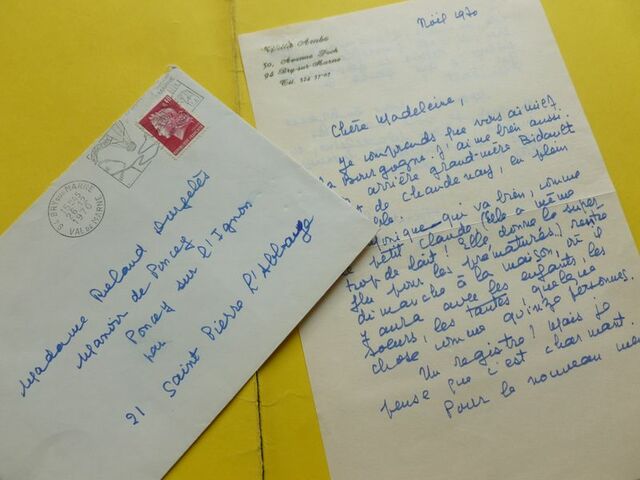 50, Avenue Foch
94 Bry-sur-Marne
Noël 1970
Chère Madeleine,
Je comprends que vous aimiez
la Bourgogne. J'aime bien aussi.
arrière grand-mère Bidault
de Chaudenay, en plein
qui va bien, comme
petit Claude, (elle a même
trop de lait! Elle donne le super-
flu pour les prématurés) rentre
dimanche à la maison, où il
y aura avec les enfants, les
soeurs, les tantes, quelque
chose comme quinze personnes.
Un registre! Mais je
pense que c'est charmant.
Pour le nouveau
94 BRY SUR MARNE
1970
VAL DE MARNE
Madame Roland
Manoir de Poncey
Poncey sur l'Ignon
par
21 Saint Pierre l'Abbaye